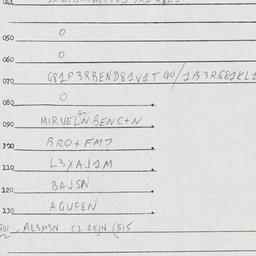 050 0
060 0
070 G81P3RBEND81V1TQ0/1B3RG81KL1
080 0
090 MIRVELN BENC+N
BRO+FM7
110 L3XAJ1M
120 BAJSN
130 AGUFEN
AL3M3N C1 ZEJN (515